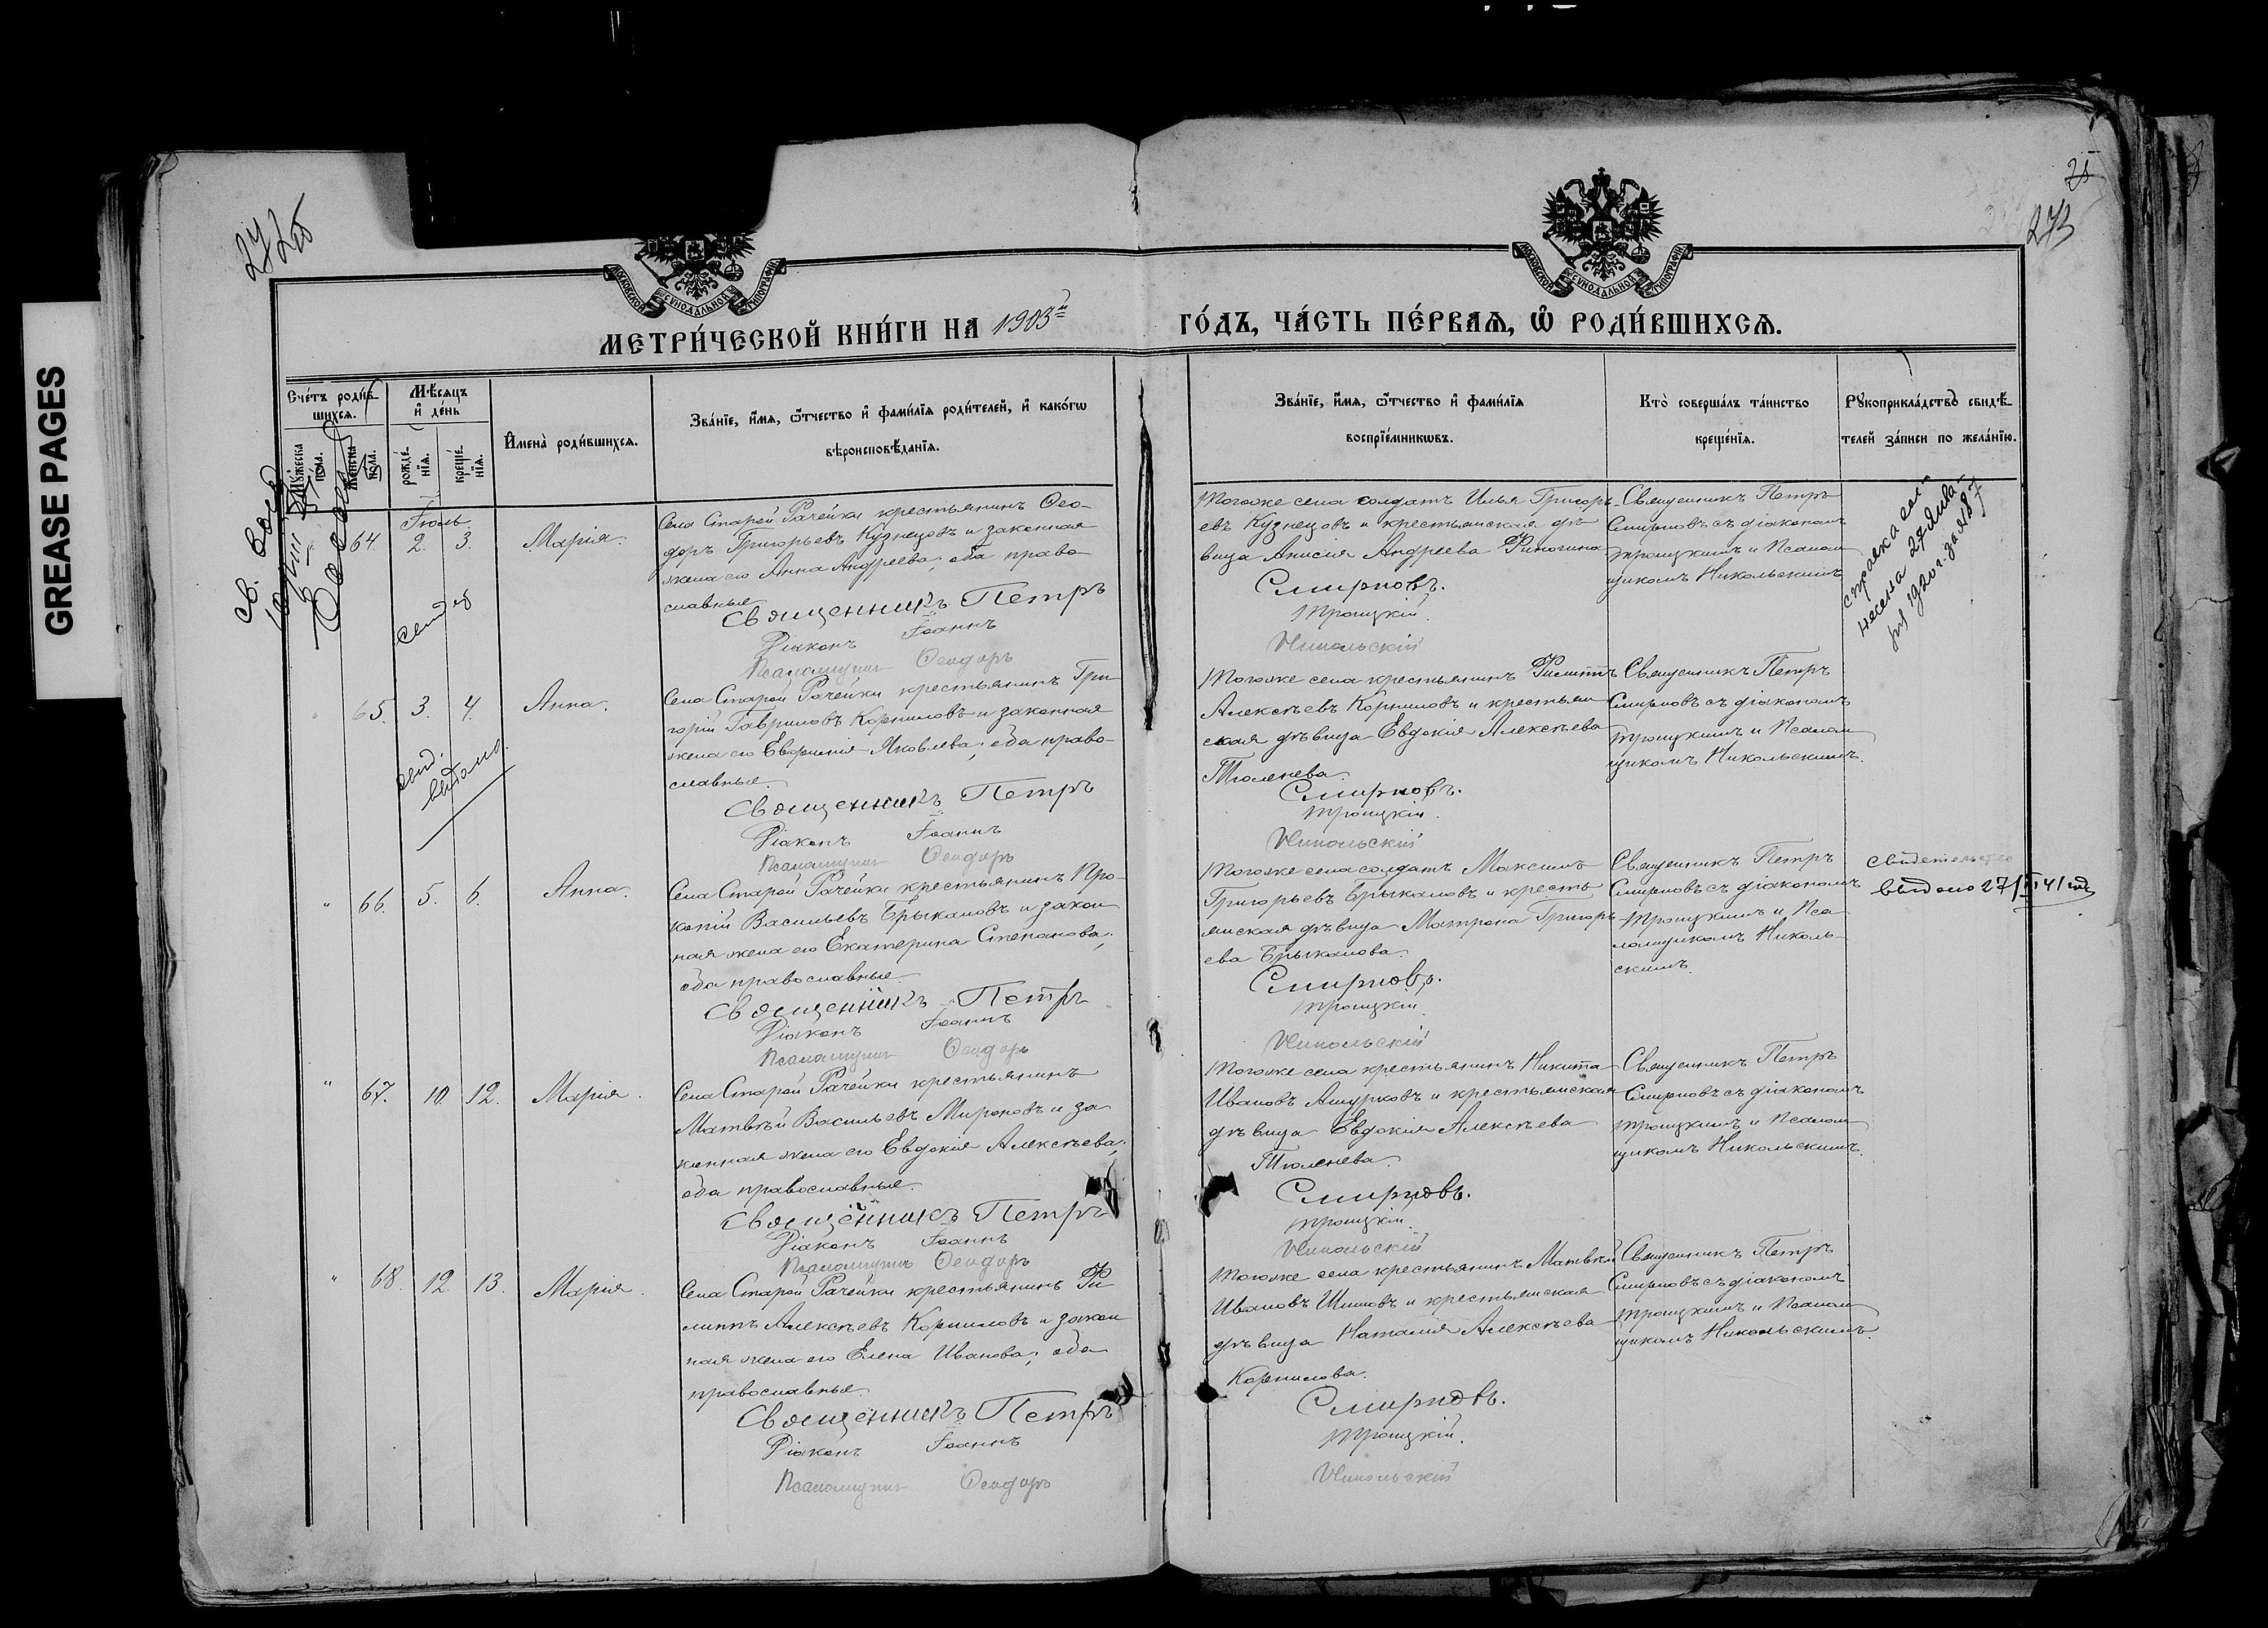 GREASE PAGES
25
273
МОСКОВСКОЙ СУНОДАЛЬНОЙ ТИПОГРАФІИ
МОСКОВСКОЙ СУНОДАЛЬНОЙ ТИПОГРАФІИ
МЕТРИ́ЧЕСКОЙ КНИ́ГИ НА 1903й ГО́ДЪ, ЧА́СТЬ ПЕ́РВАѦ, Ѽ РОДИ́ВШИХСѦ.
Сче́тъ роди́в-
шихсѧ.
Мѣ́сѧцъ
и҆ де́нь
Мꙋ́жеска
пола.
Же́нска
по́ла.
рожде́-
нїѧ.
креще́-
нїѧ.
И҆мена̀ роди́вшихсѧ.
Зва́нїе, и҆́мѧ, ѻ҆́тчество и҆ фами́лїѧ роди́телей, и҆ како́гѡ
вѣроисповѣ́данїѧ.
Зва́нїе, и҆́мѧ, ѻ҆́тчество и҆ фами́лїѧ
воспрїе́мникѡвъ.
Кто̀ соверша́лъ та́инство
креще́нїѧ.
Рꙋкоприкла́дство свидѣ́-
телей за́писи по жела́нїю.
Іюль
64. 2. 3. Марія.
Села Старой Рачейки крестьянинъ Ѳео-
доръ Григорьевъ Кузнецовъ и законная
жена его Анна Андреева; оба право-
славные
Священникъ Петръ
Діаконъ Іоаннъ
Псаломщикъ Ѳеодоръ
Тогоже села солдатъ Илья Григорь-
евъ Кузнецовъ и крестьянская дѣ-
вица Анисія Андреева
Смирновъ.
Троицкій.
Никольскій
Священникъ Петръ
Смирновъ съ діакономъ
Троицкимъ и Псалом
щикомъ Никольскимъ
справка
" 65. 3. 4. Анна.
свид.
выдано.
Села Старой Рачейки крестьянинъ Гри-
горій Гавриловъ Корниловъ и законная
жена его Евфимія Яковлева; оба право-
славные.
Священникъ Петръ
Діаконъ Іоаннъ
Псаломщикъ Ѳеодоръ
Тогоже села крестьянинъ Филиппъ
Алексѣевъ Корниловъ и крестьян
ская дѣвица Евдокія Алексѣева
Тюленева.
Смирновъ.
Троицкій.
Никольскій
Священникъ Петръ
Смирновъ съ діакономъ
Троицкимъ и Псалом
щикомъ Никольскимъ.
" 66. 5. 6. Анна.
Села Старой Рачейки крестьянинъ Про-
копій Васильевъ Брыкаловъ и закон
ная жена его Екатерина Степанова;
оба православные
Священникъ Петръ
Діаконъ Іоаннъ
Псаломщикъ Ѳеодоръ
Тогоже села солдатъ Максимъ
Григорьевъ Брыкаловъ и кресть-
янская дѣвица Матрона Григорь-
ева Брыкалова.
Смирновъ.
Троицкій.
Никольскій
Священникъ Петръ
Смирновъ съ діакономъ
Троицкимъ и Пса-
ломщикомъ Николь-
скимъ.
свидетельство
выдано 27/
" 67. 10. 12. Марія.
Села Старой Рачейки крестьянинъ
Матвѣй Васильевъ Мироновъ и за
конная жена его Евдокія Алексѣева;
оба православные.
Священникъ Петръ
Діаконъ Іоаннъ
Псаломщикъ Ѳеодоръ
Тогоже села крестьянинъ Никита
Ивановъ Ашурковъ и крестьянская
дѣвица Евдокія Алексѣева
Тюленева.
Смирновъ.
Троицкій.
Никольскій
Священникъ Петръ
Смирновъ съ діакономъ
Троицкимъ и Псалом
щикомъ Никольскимъ.
" 68. 12. 13. Марія.
Села Старой Рачейки крестьянинъ Фи
липпъ Алексѣевъ Корниловъ и закон
ная жена его Елена Иванова; оба
православные.
Священникъ Петръ
Діаконъ Іоаннъ
Псаломщикъ Ѳеодоръ
Тогоже села крестьянинъ Матвѣй
Ивановъ Шиловъ и крестьянская
дѣвица Наталія Алексѣева
Корнилова.
Смирновъ.
Троицкій.
Никольскій
Священникъ Петръ
Смирновъ съ діакономъ
Троицкимъ и Псалом
щикомъ Никольскимъ.